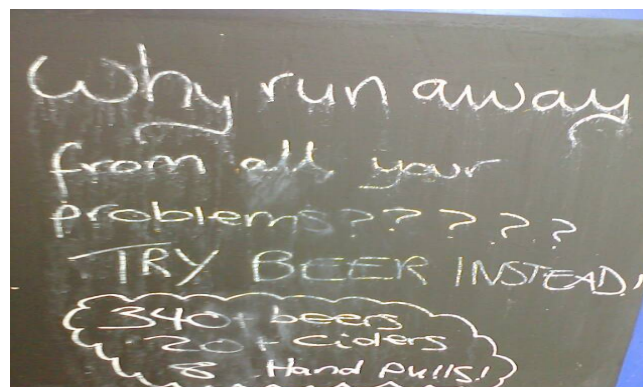 Why run away
from all your
problems?????
TRY BEER INSTEAD!
340+ beers
20+ Ciders
8 Hand Pulls!